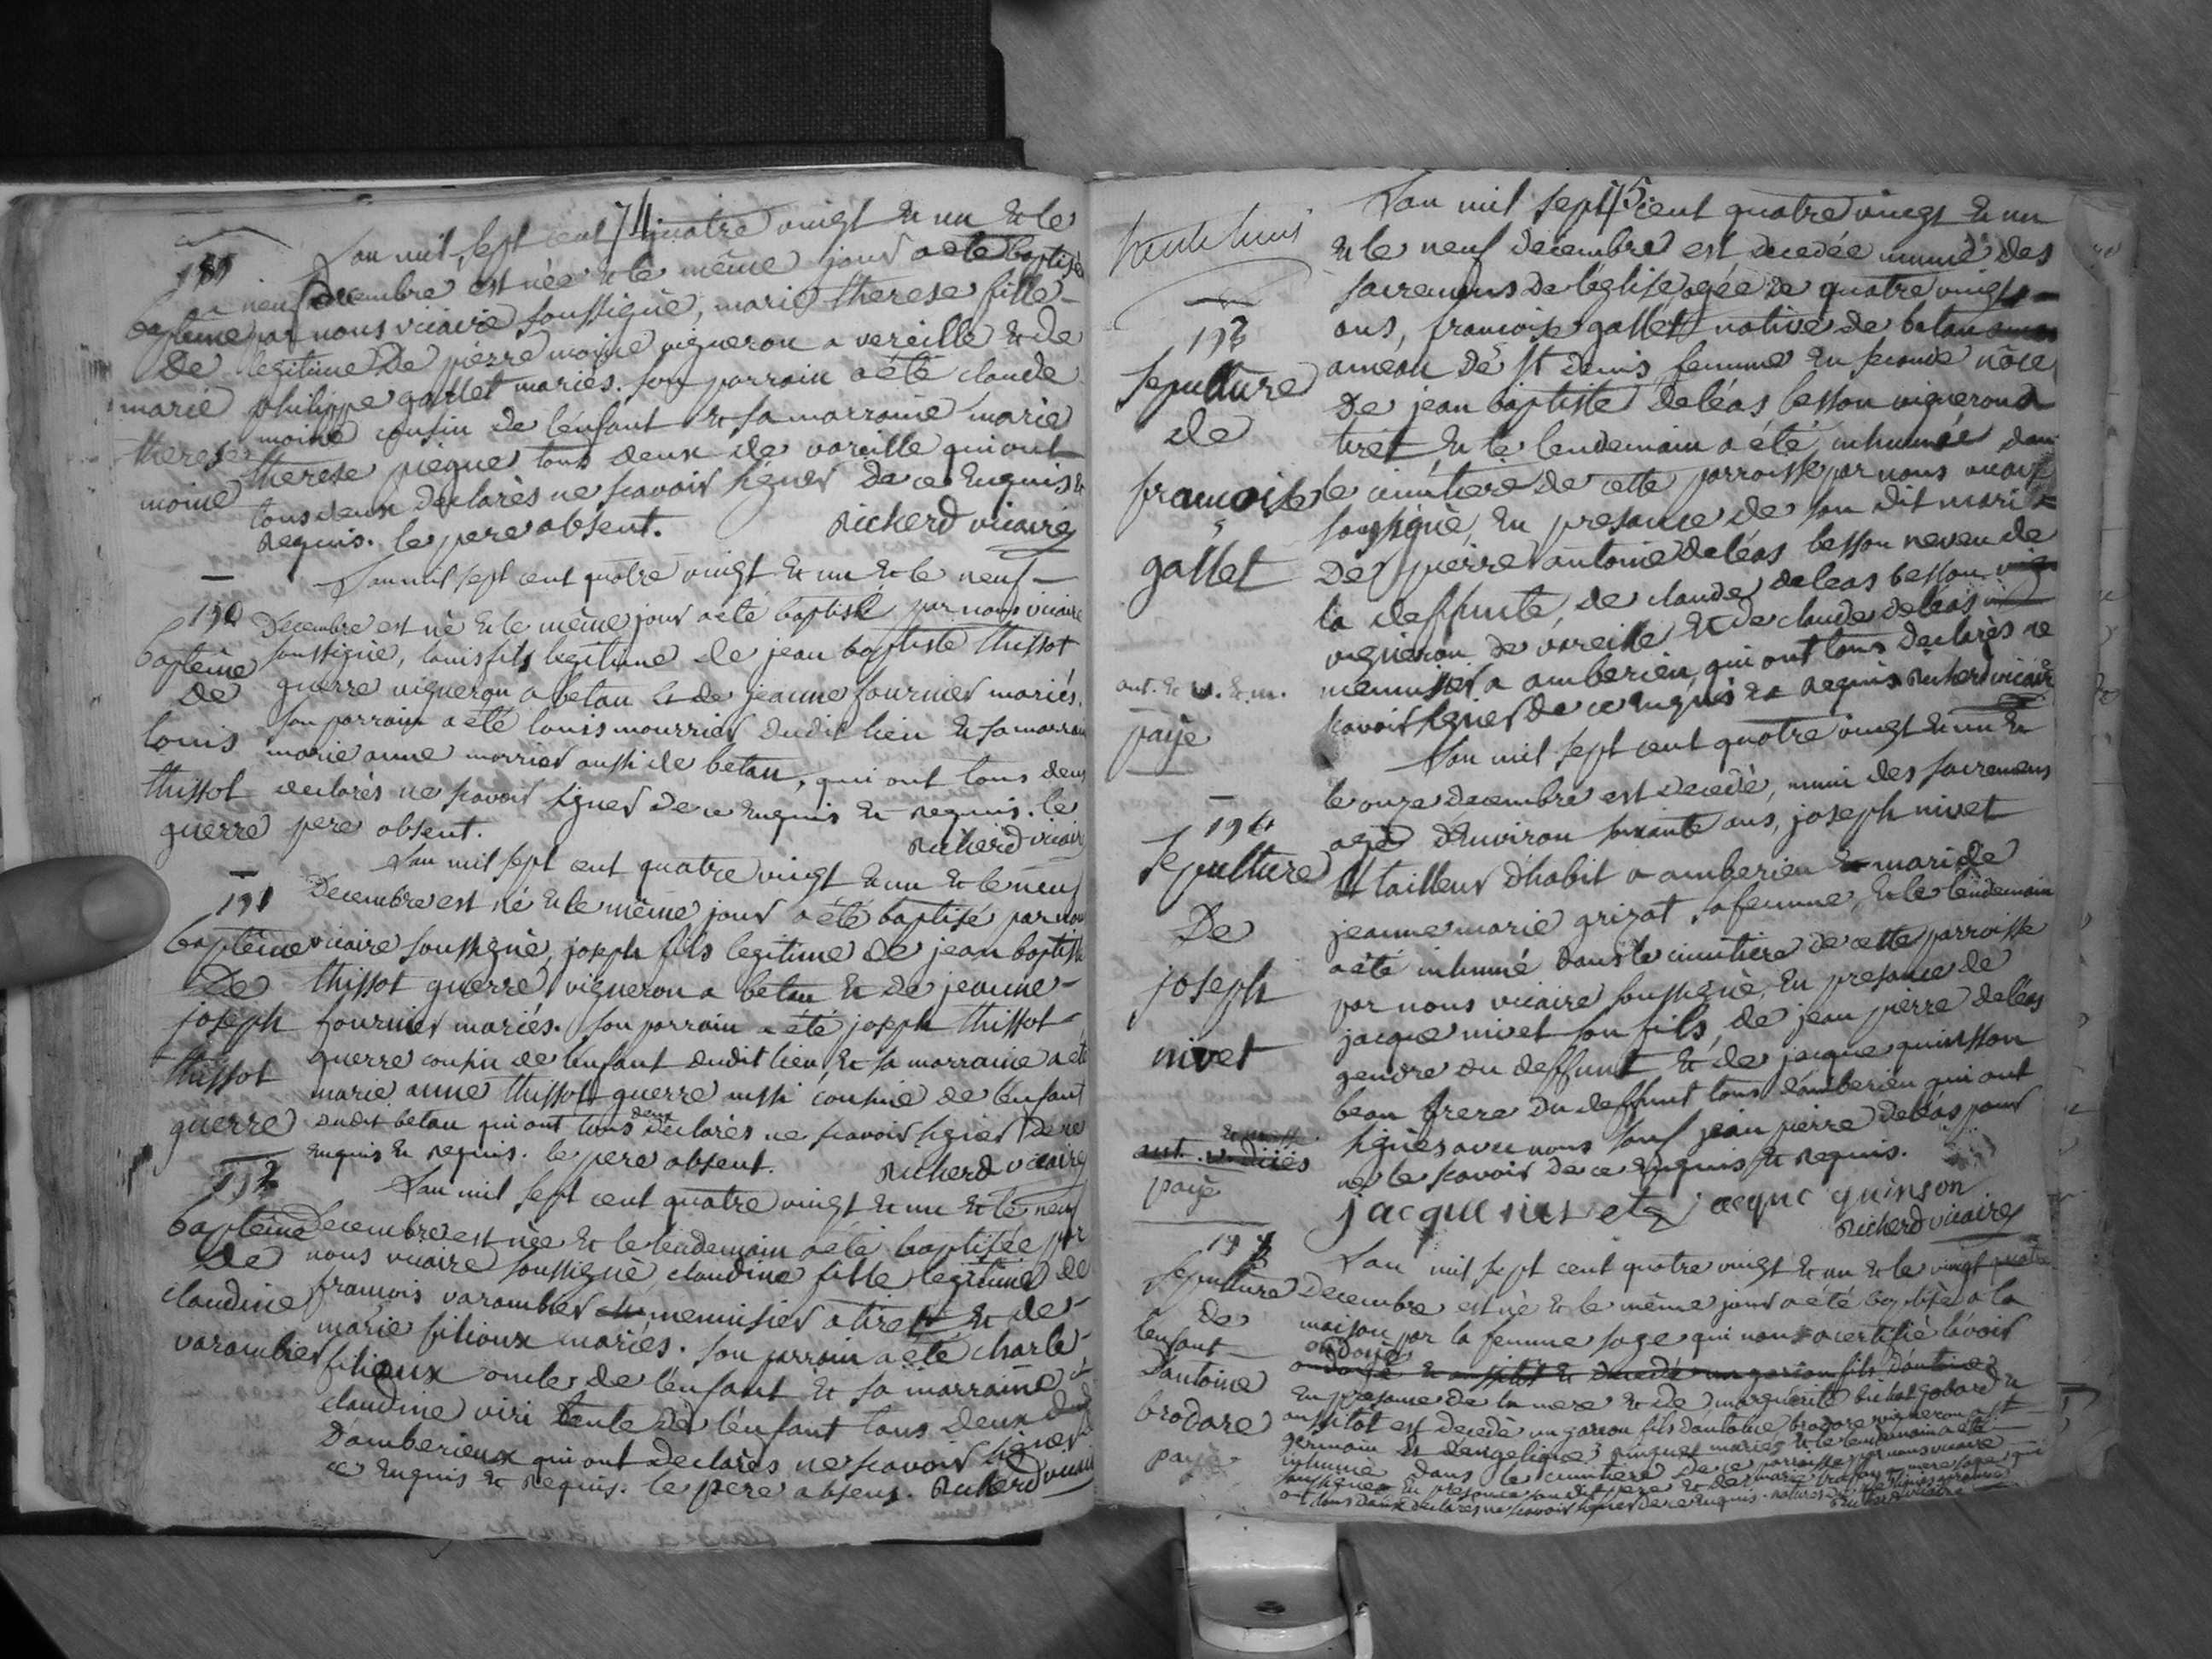 74
L'an mil sept cent quatre vingt et un et le
neuf decembre est née et le même jour a eté baptisée
par nous vicaire soussigné, marie therese fille
legitime de pierre moine vigneron a vareille et de
philippe gallet mariés. son parrain a été claude
moine cousin de l'enfant et sa marraine marie
therese piegue tous deux de vareille qui ont
tous deux declarés ne scavoir signer de ce enquis et
requis. le pere absent. Richerd vicaire
baptême
de
marie
therese
moine
L'an mil sept cent quatre vingt et un et le neuf
190
decembre est né et le même jour a eté baptisé par nous vicaire
soussigné, louis fils legitime de jean baptiste thissot
guerre vigneron a betan et de jeanne fournier mariés.
son parrain a été louis mourrier dudit lieu et sa marraine
marie anne morrier aussi de betan, qui ont tous deux
declarés ne scavoir signer de ce enquis et requis. le
pere absent. Richerd vicaire
baptême
de
louis
thissot
guerre
L'an mil sept cent quatre vingt et un et le neuf
191
decembre est né et le même jour a été baptisé par nous
vicaire soussigné, joseph fils legitime de jean baptiste
thissot guerre vigneron a betan et de jeanne
fournier mariés. son parrain a été joseph thissot
guerre cousin de l'enfant dudit lieu et sa marraine a eté
marie anne thissot guerre aussi cousine de l'enfant
dudit betan qui ont tous deux declarés ne scavoir signer de ce
enquis et requis. le pere absent. Richerd vicaire
baptême
de
joseph
thissot
guerre
192
L'an mil sept cent quatre vingt et un et le neuf
decembre est née et le lendemain a été baptisée par
nous vicaire soussigné, claudine fille legitime de
francois varambier menuisier a tiret et de
marie filioux mariés. son parrain a été charle
filioux oncle de l'enfant et sa marraine
claudine viri tente de l'enfant tous deux
d'amberieux qui ont declarés ne scavoir signer de
ce enquis et requis. le pere absent. Richerd vicaire
baptême
de
claudine
varambier
75
L'an mil sept cent quatre vingt et un
et le neuf decembre est decedée munie des
sacremens de l'église agée de quatre vingt
ans, francoise gallet native de betan
ameau de st denis femme en seconde nôce
de jean baptiste deléas besson vigneron a
tiret et le lendemain a été inhumée dans
le cimitiere de cette parroisse par nous vicaire
soussigné, en presance de son dit mari
de pierre antoine deléas besson neveu de
la deffunte, de claude deleas besson
vigneron de vareille et de claude deléas
menuisier a amberieu, qui ont tous declarés ne
scavoir signer de ce enquis et requis Richerd vicaire
193
sepulture
de
francoise
gallet
payé
L'an mil sept cent quatre vingt et un et
le onze decembre est decedé, muni des sacremens
agé d'environ soixante ans, joseph nivet
tailleur d'habit a amberieu mari de
jeanne marie grizot sa femme, et le lendemain
a été inhumé dans le cimitiere de cette parroisse
par nous vicaire soussigné, en presance de
jacque nivet son fils, de jean pierre deléas
gendre du deffunt et de jacque quinsson
beau frere du deffunt tous d'amberieu qui ont
signés avec nous sauf jean pierre deléas pour
ne le scavoir de ce enquis et requis.
jacque nivet jacque quinson
Richerd vicaire
194
sepulture
de
joseph
nivet
payé
L'an mil sept cent quatre vingt et un et le vingt quatre
decembre est né et le même jour a été baptisé a la
maison par la femme sage qui nous a certifié l'avoir
ondoyé
en presance de la mere et de marguerite
aussitot est decedé un garcon fils d'antoine brodare vigneron a st
germain et d'angelique pinguet mariés et le lendemain a été
inhumé dans le cimitiere de ce parroisse par nous vicaire
soussigné en presance du dit pere et de marie
ont tous deux declarés ne scavoir signer de ce enquis
Richerd vicaire
sepulture
de
l'enfant
d'antoine
brodare
payé